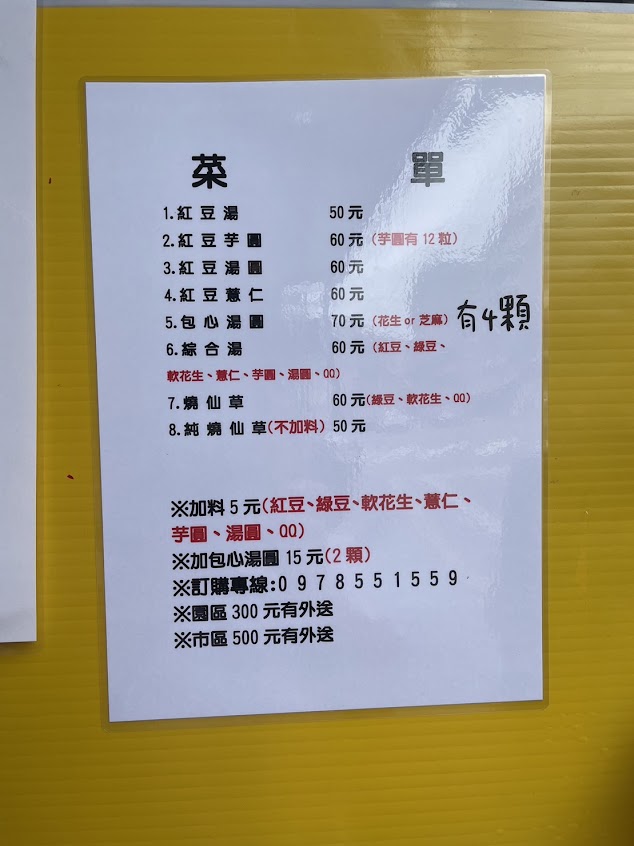 菜單
1.紅豆湯 50元
2.紅豆芋圓 60元(芋圓有12粒)
3.紅豆湯圓 60元
4.紅豆薏仁 60元
5.包心湯圓 70元(花生or芝麻) 有4顆
6.綜合湯 60元(紅豆、綠豆、
軟花生、薏仁、芋圓、湯圓、QQ)
7.燒仙草 60元(綠豆、軟花生、QQ)
8.純燒仙草(不加料) 50元
※加料5元(紅豆、綠豆、軟花生、薏仁、
芋圓、湯圓、QQ)
※加包心湯圓15元(2顆)
※訂購專線:0978551559
※園區300元有外送
※市區500元有外送